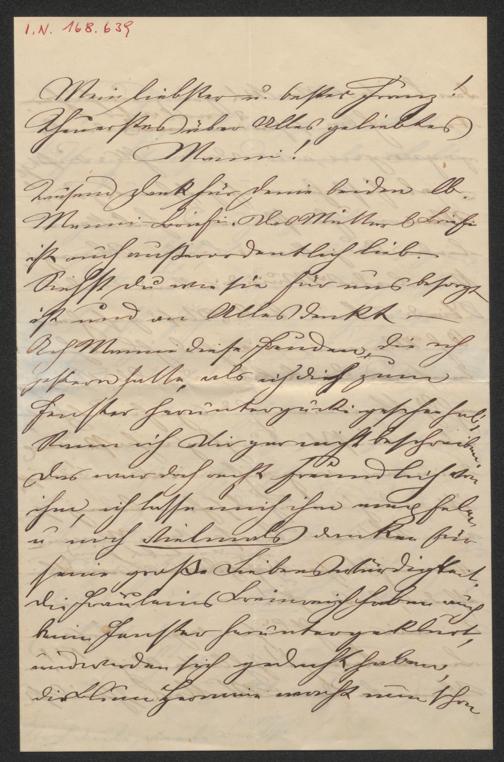 I.N. 168.639
Mein liebster u. bester Franz!
Theuerstes über Alles geliebtes
Manni!
Tausend Dank für deine beiden lb.
Manni-Briefe. Das Mutter's Briefe
ist auch außerordentlich lieb.
Siehst du wie sie für uns besorgt
ist und an Alles denkt —
Ach Manni diese Freuden, die ich
gestern hatte, als ich dich zum
Fenster heruntergucke gesehen hab,
kann ich Dir gar nicht beschreiben.
Das war doch recht freundlich von
ihm, ich lasse mich ihm
u noch vielmals danken für
seine große Liebenswürdigkeit.
Die Fräuleins haben auch
beim Fenster heruntergeschaut,
und werden sich gedacht haben,
die kleine Hermine macht nun schon